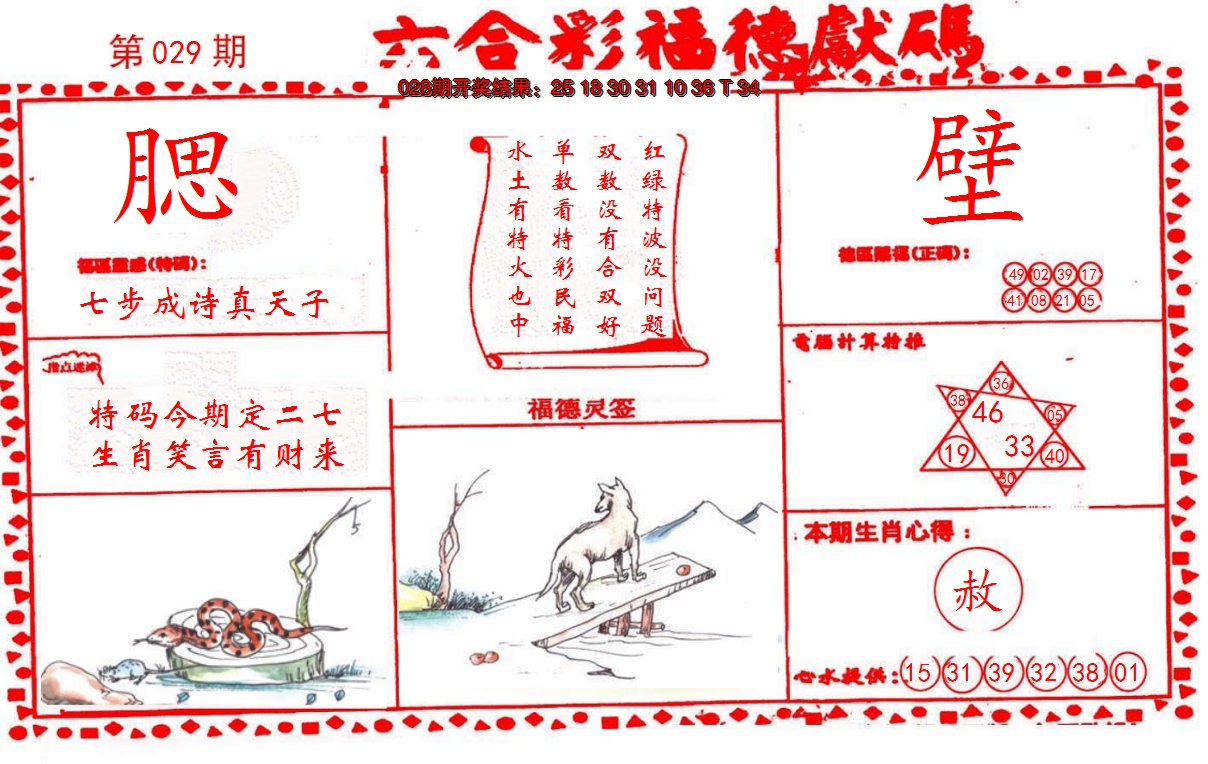 第 029 期
六合彩福德獻碼
028期开奖结果：25 18 30 31 10 36 T 34
腮
七步成诗真天子
特码今期定二七
生肖笑言有财来
红绿特波没问题
双数没有合双好
单数看特彩民福
水土有特火也中
福德灵签
壁
49 02 39 17
41 08 21 05
電腦計算推
36
38 46 05
19 33 40
30
本期生肖心得：
赦
心水提供：15 31 39 32 38 01